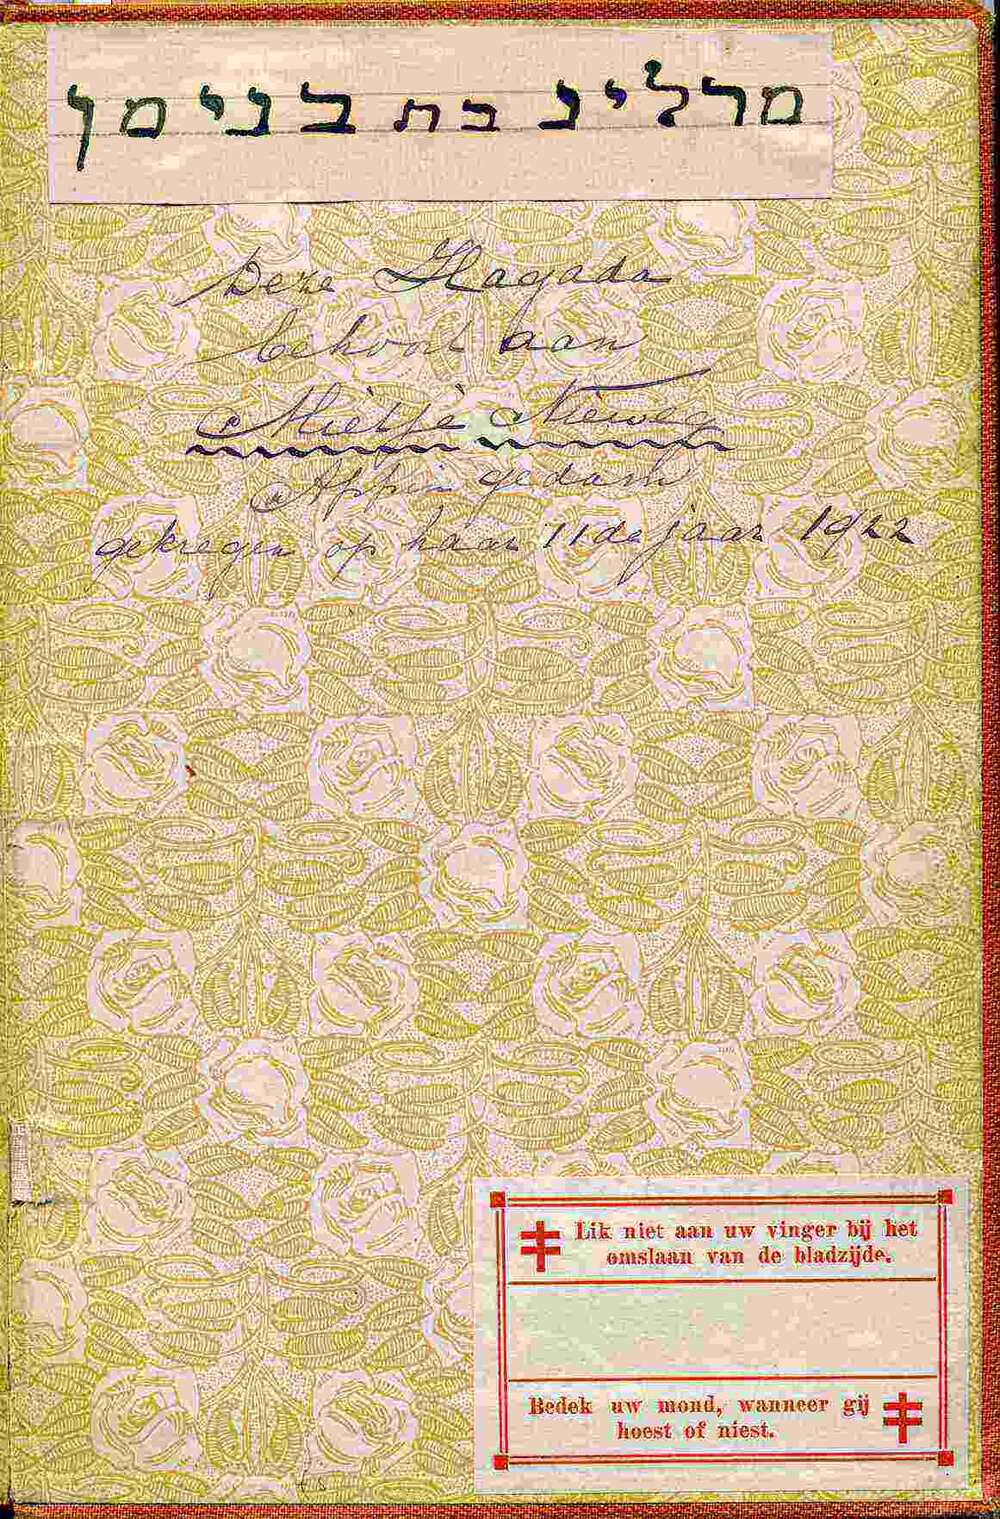 מרלינ בת בנימן
Deze Hagada
behoort aan
Mietje Nieweg
Appingedam
gekregen op haar 11de jaar 1922
Lik niet aan uw vinger bij het
omslaan van de bladzijde.
Bedek uw mond, wanneer gij
hoest of niest.